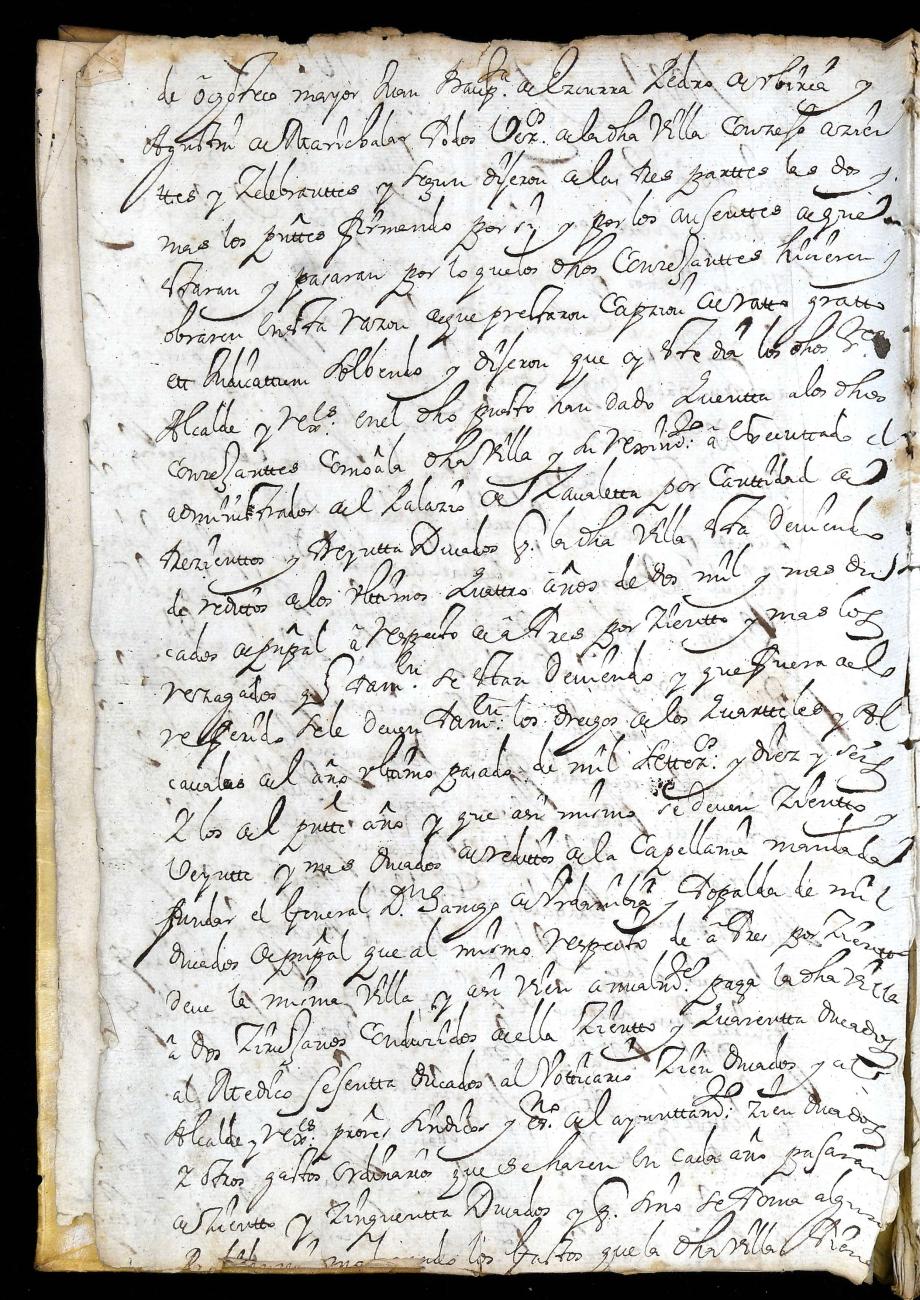 de Ogoteco mayor Juan Baup.ta de Lizurra Pedro de Urbirea y
Agustin de Marichalar todos Vez.os de la dha Villa Conzejo azien
ttes y Zelebranttes y segun dijeron de las tres parttes las dos y
mas los pnttes firmando por si y por los ausenttes de que
estaran y pasaran por lo que los dhos Conzejanttes hicieren y
obraren en esta razon de que prestaron Capzion de ratto gratto
ett Judicattum solbendo y dijeron que oy este dia los dhos S.res
Alcalde y rex.es en el dho puesto han dado quentta a los dhos
Conzejanttes Como a la dha Villa y su vezind.d a Executtado el
administrador del Palazio de Zavaletta por Canttidad de
trezienttos y treyntta Ducados q. la dha Villa esta deviendo
de redittos de los ultimos quattro años de dos mil y mas du
cados de pnpal a respecto de a tres por Zientto y mas los
rezagados q tam.en se estan deviendo y que fuera de lo
referido se le deven tam.en los dregos de los quartteles y Al
cavalas del año ultimo pasado de mil settez.os y diez y seis
y los del pntte año y que asi mismo se deven Zientto
veyntte y mas ducados de redittos de la Capellania mandada
fundar el General D.n Domingo de y Dopalda de mil
ducados de pnpal que al mismo respecto de a tres por Zientto
deve la misma Villa y asi vien anualm.te paga la dha Villa
a dos Zirujanos Conduzidos de ella Zientto y quarentta ducados
al Medico sesentta ducados al Botticario Zien ducados y al
Alcalde y rex.es priores sindicos y es.no del ayunttam.to Zien ducados
y otros gastos ordinarios que se hazen en cada año pasaran
de Zientto y Zinquentta Ducados y q. sino se toma algun
los gastos que la dha Villa tiene